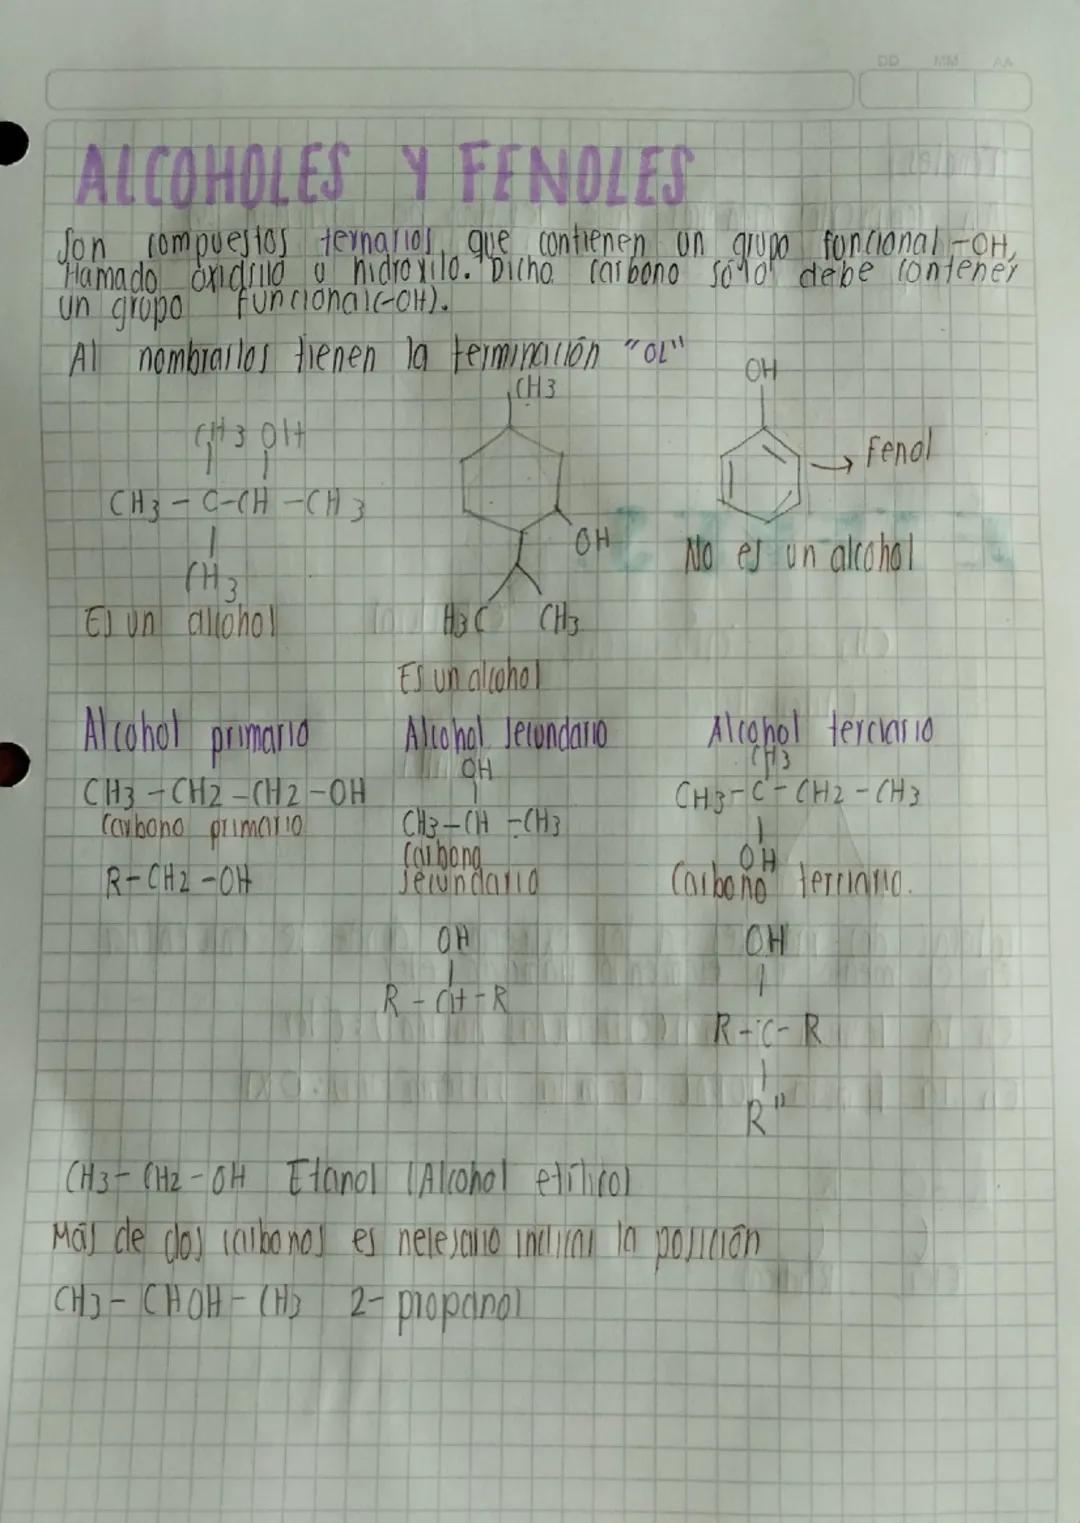 DD MM AA
ALCOHOLES Y FENOLES
Son compuestos ternarios, que contienen un grupo funcional -OH,
llamado oxidrilo u hidroxilo. Dicho carbono sólo debe contener
un grupo funcional (-OH).
Al nombrarlos tienen la terminación "OL"
CH3 OH
CH3 - C-CH -CH3
CH3
Es un alcohol
CH3
OH
H3C CH3
Es un alcohol
OH
→ Fenol
No es un alcohol
Alcohol primario
CH3 -CH2 -CH2 -OH
Carbono primario
R-CH2 -OH
Alcohol secundario
OH
CH3-CH -CH3
Carbono
secundario
OH
R - CH - R
Alcohol terciario
CH3
CH3-C - CH2 - CH3
OH
Carbono terciario.
OH
R-C- R
R"
CH3- CH2 - OH Etanol (Alcohol etílico)
Más de dos carbonos es necesario indicar la posición
CH3- CHOH- CH3 2- propanol